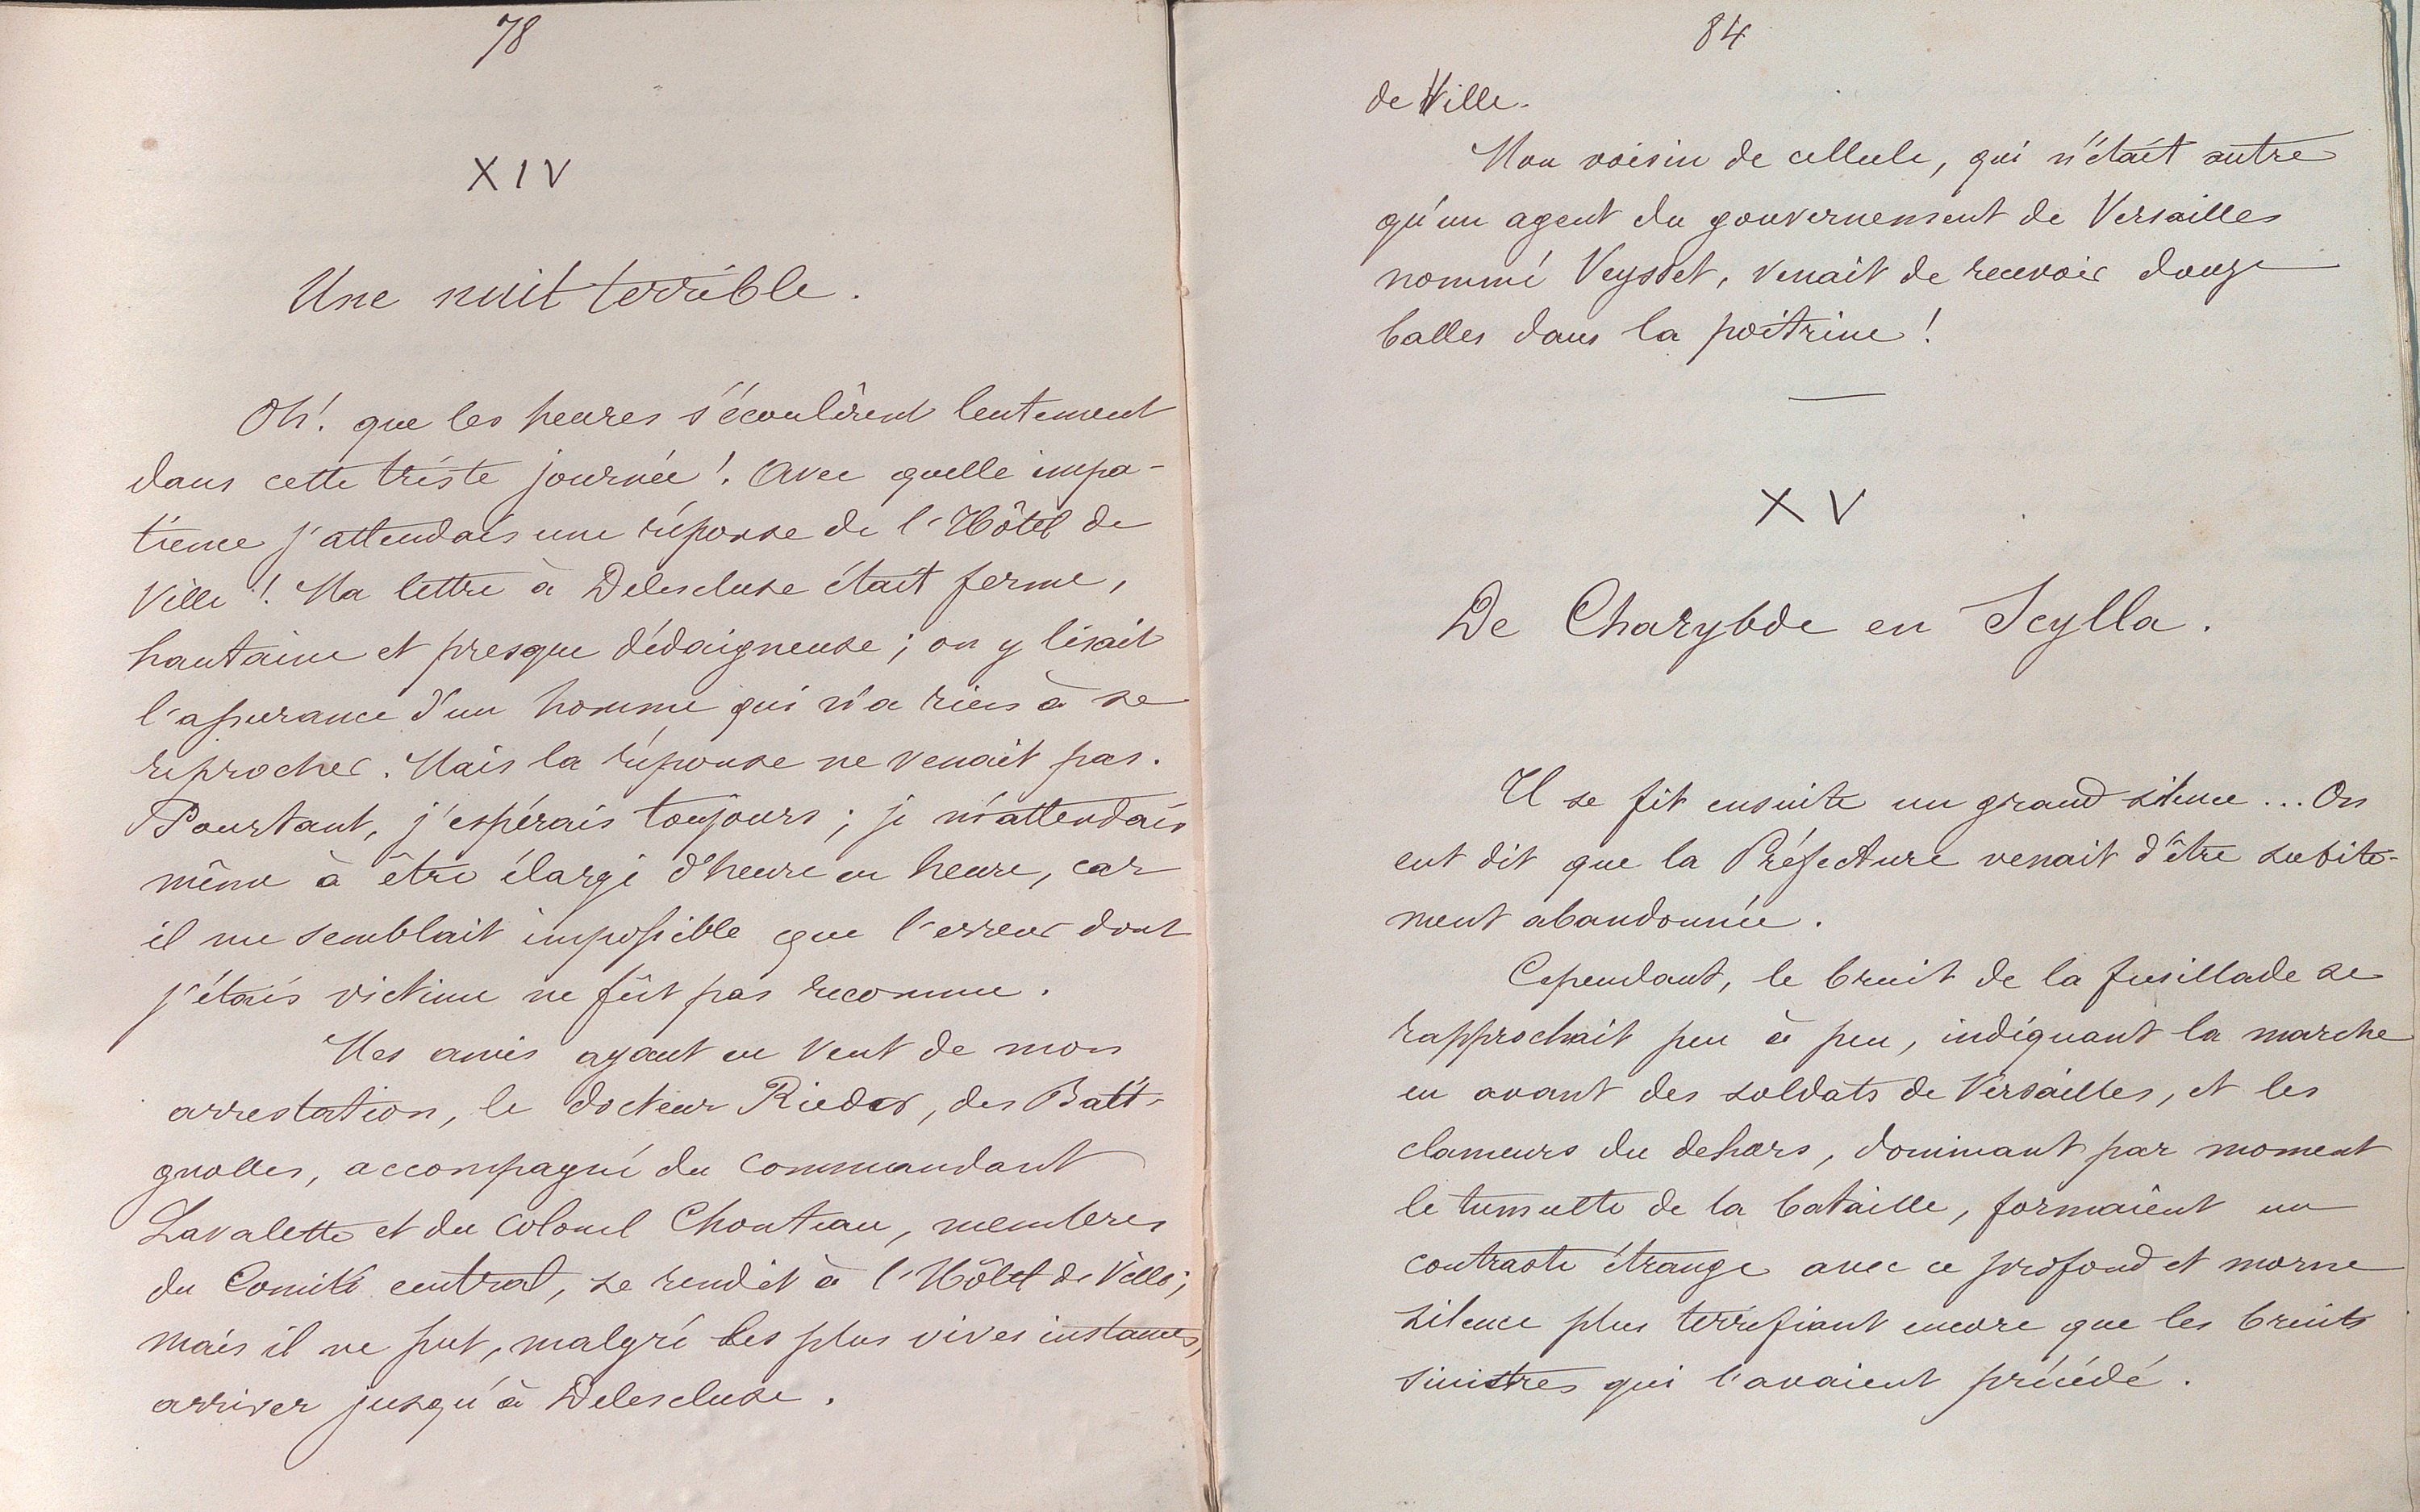 78
XIV
Une nuit terrible.
Oh! que les heures s'écoulèrent lentement
dans cette triste journée! Avec quelle impa-
tience j'attendais une réponse de l'Hôtel de
Ville! Ma lettre à Delescluse était ferme,
hautaine et presque dédaigneuse; on y lisait
l'assurance d'un homme qui n'a rien à se
reprocher. Mais la réponse ne venait pas.
Pourtant, j'espérais toujours; je m'attendais
même à être élargi d'heure en heure, car
il me semblait impossible que l'erreur dont
j'étais victime ne fût pas reconnue.
Mes amis ayant eu vent de mon
arrestation, le docteur Rieder, des Bati-
gnolles, accompagné du commandant
Lavalette et du colonel Chouteau, membres
du Comité central, se rendit à l'Hôtel de Ville;
mais il ne put, malgré les plus vives instances,
arriver jusqu'à Delescluse.
84
de Ville.
Mon voisin de cellule, qui n'était autre
qu'un agent du gouvernement de Versailles
nommé Veysset, venait de recevoir douze
balles dans la poitrine!
XV
De Charybde en Scylla.
Il se fit ensuite un grand silence... On
eut dit que la Préfecture venait d'être subite-
ment abandonnée.
Cependant, le bruit de la fusillade se
rapprochait peu à peu, indiquant la marche
en avant des soldats de Versailles, et les
clameurs du dehors, dominant par moment
le tumulte de la bataille, formaient un
contraste étrange avec ce profond et morne
silence plus terrifiant encore que les bruits
sinistres qui l'avaient précédé.